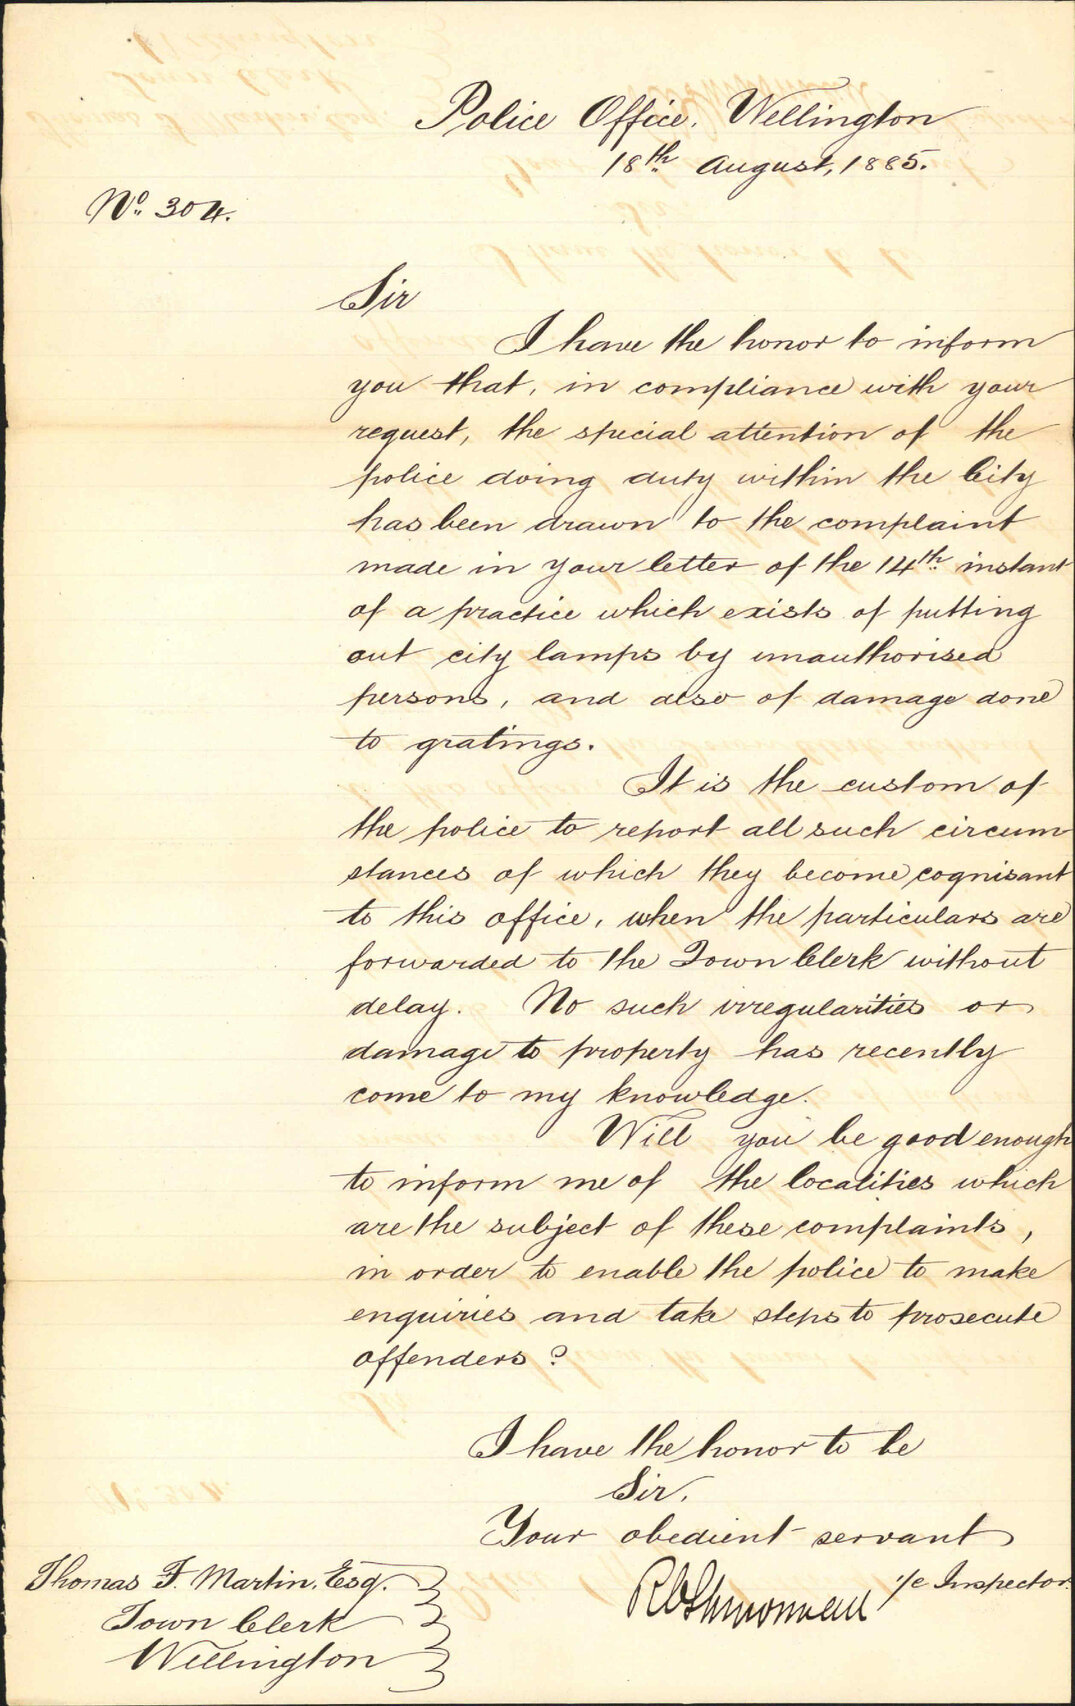 Police Office, Wellington
18th August, 1885.
No. 304.
Sir
I have the honor to inform
you that, in compliance with your
request, the special attention of the
police doing duty within the City
has been drawn to the complaint
made in your letter of the 14th instant
of a practice which exists of putting
out city lamps by unauthorised
persons, and also of damage done
to gratings.
It is the custom of
the police to report all such circum
stances of which they become cognisant
to this office, when the particulars are
forwarded to the Town Clerk without
delay. No such irregularities or
damage to property has recently
come to my knowledge.
Will you be good enough
to inform me of the localities which
are the subject of these complaints,
in order to enable the police to make
enquiries and take steps to prosecute
offenders?
I have the honor to be
Sir,
Your obedient servant
i/c Inspector.
Thomas F. Martin, Esq.
Town Clerk
Wellington